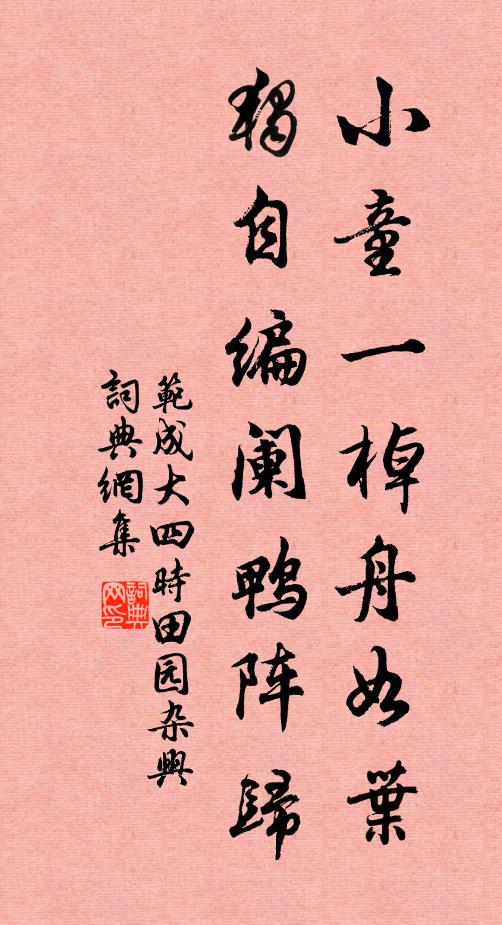 小童一棹舟如葉
獨自编阑鸭阵歸
範成大四時田园杂興
詞典網集
詞典网印